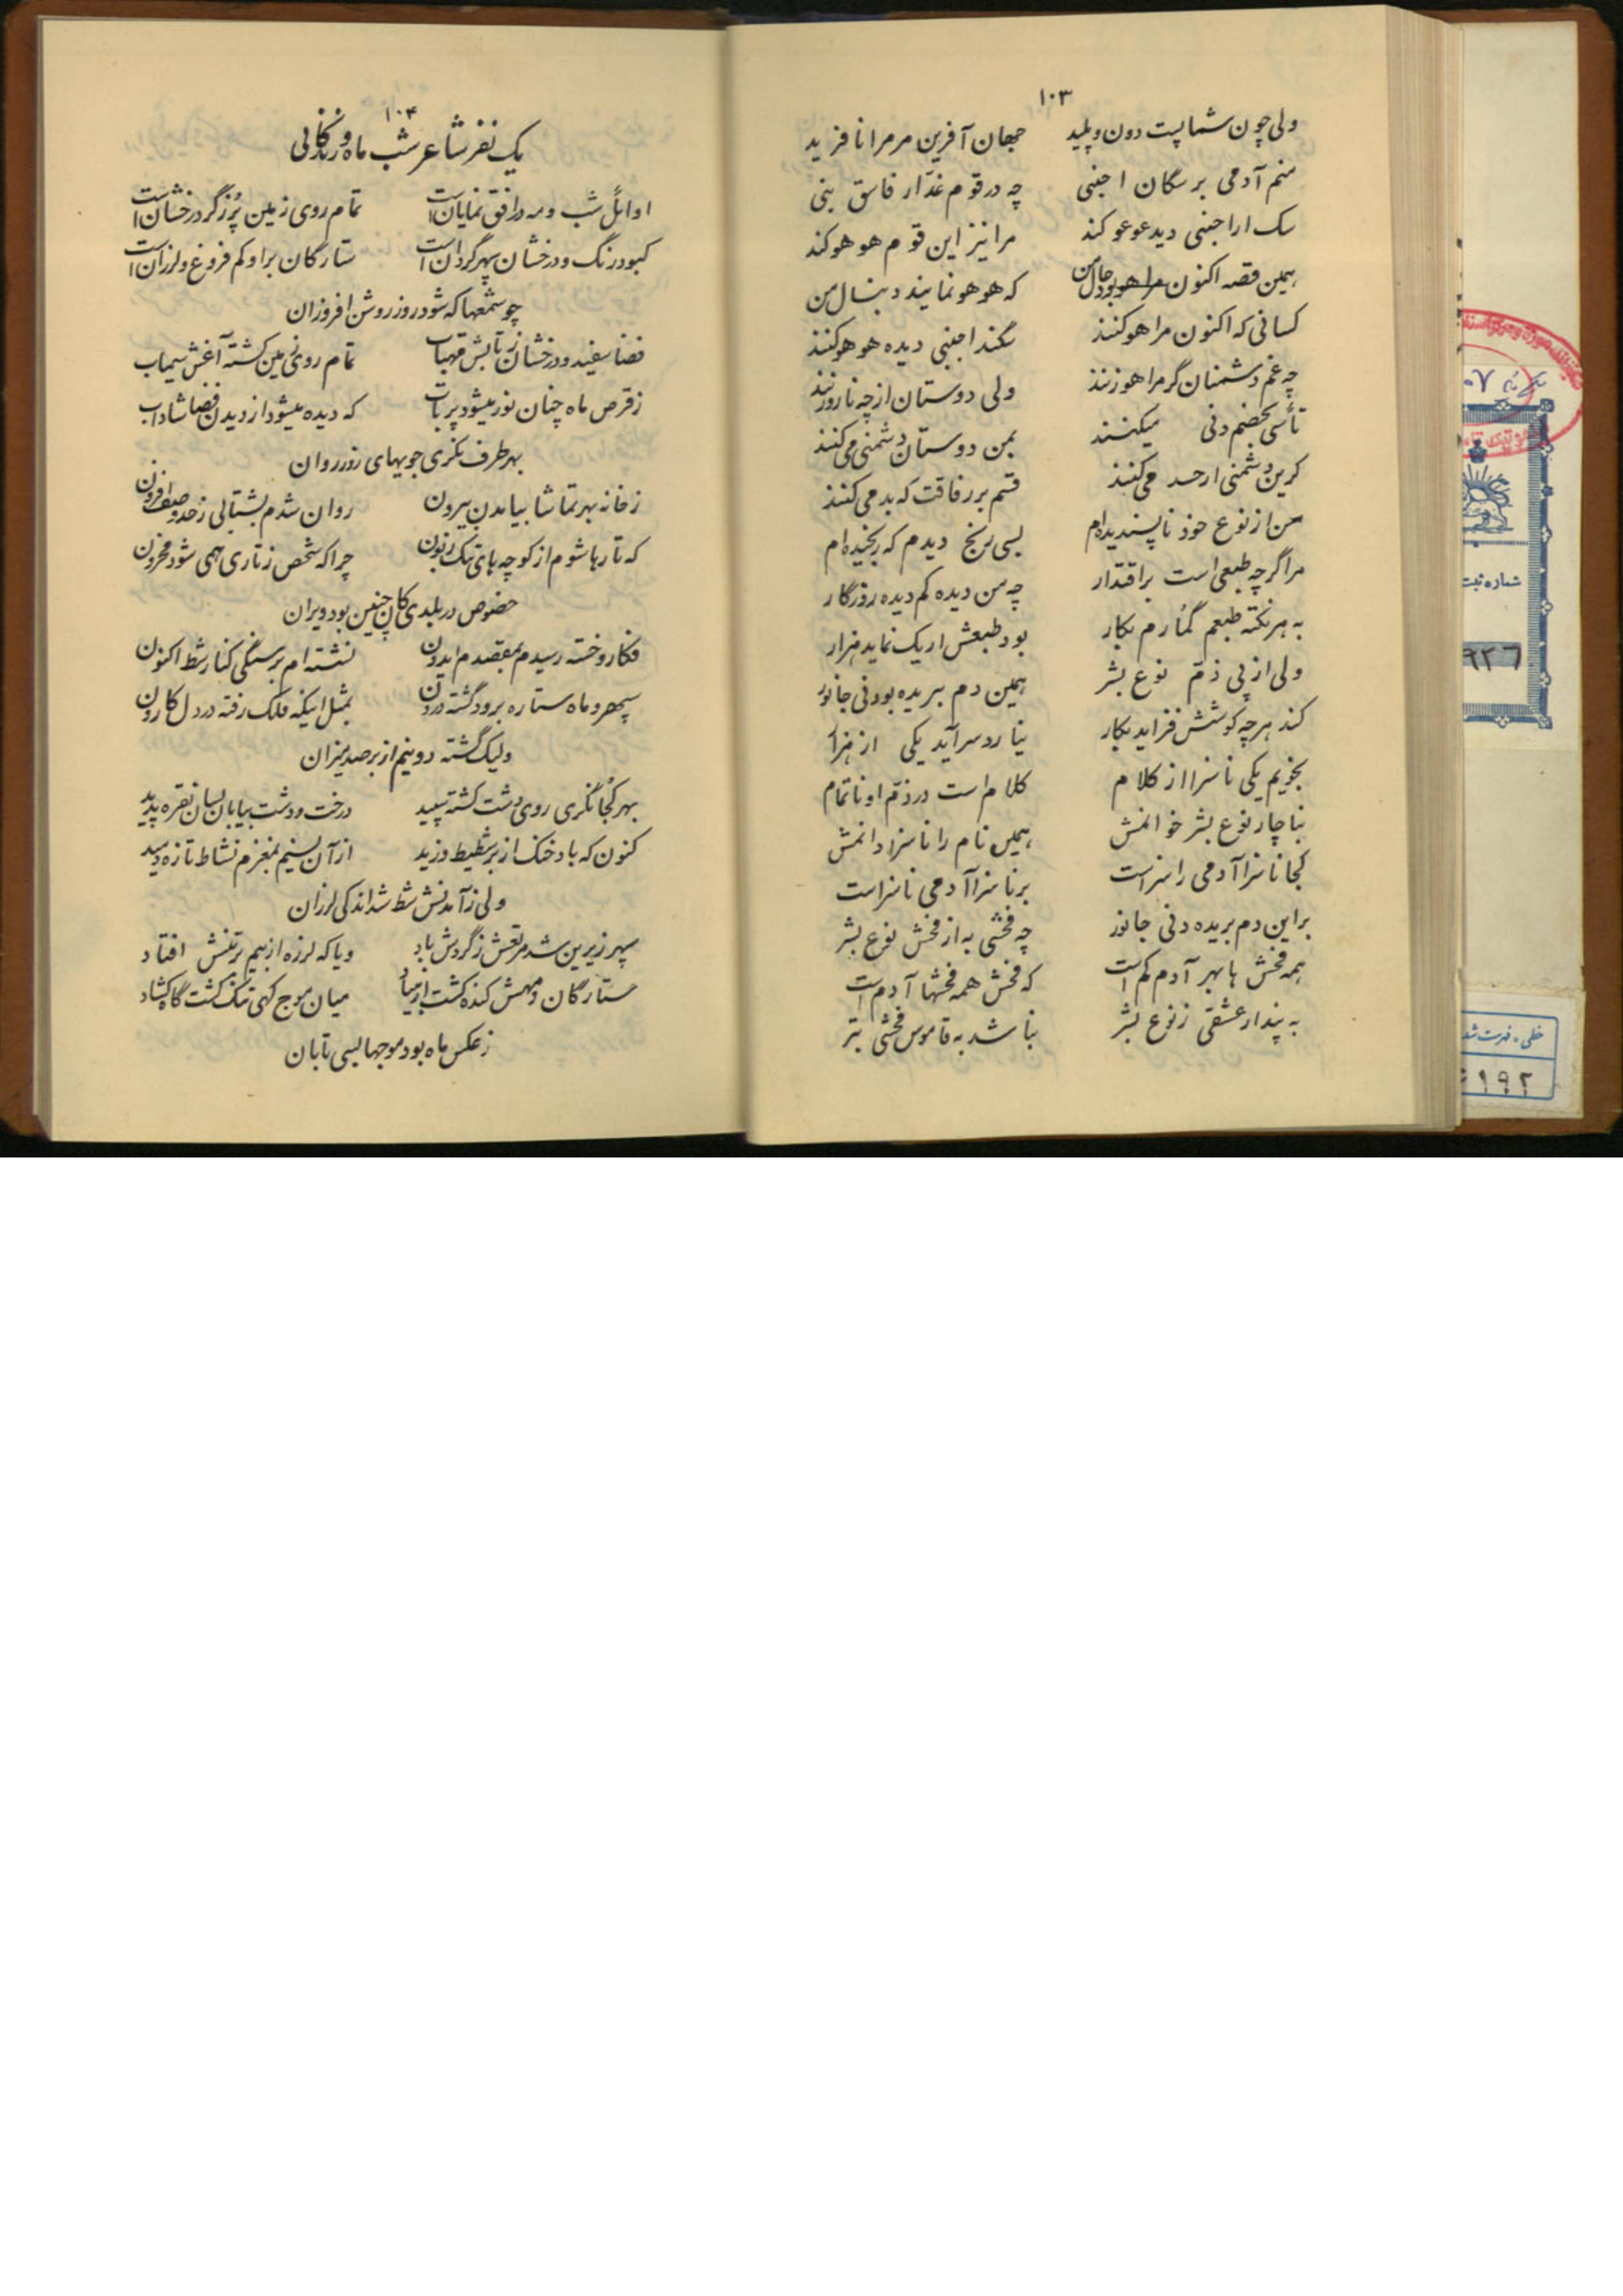 ۱۰۳
ولی چون شما پست دون و پلید جهان آفرین مر مرا نافرید
منم آدمی بر سگان اجنبی چه در قوم غدّار فاسق بنی
سک ار اجنبی دید عوعو کند مرا نیز این قوم هوهو کند
همین قصه اکنون بود جان من که هوهو نمایند دنبال من
کسانی که اکنون مرا هو کنند سگند اجنبی دیده هوهو کنند
چه غم دشمنان گر مرا هو زنند ولی دوستان از چه نارو زنند
تأسی بخصم دنی میکنند بمن دوستان دشمنی می کنند
کزین دشمنی از حسد می کنند قسم بر رفاقت که بد می کنند
من از نوع خود ناپسندیده ام بسی رنج دیدم که رنجیده ام
مرا گرچه طبعی است بر اقتدار چه من دیده کم دیده روزگار
به هر نکته طبعم گمارم بکار بود طبعش ار یک نماید هزار
ولی از پی ذمّ نوع بشر همین دم بریده بودنی جانور
کند هرچه کوشش فزاید بکار نیارد سرآید یکی از هزار
بخویم یکی ناسزا از کلام کلام است در ذمّ او ناتمام
بناچار نوع بشر خوانمش همین نام را ناسزا دانمش
کجا ناسزا آدمی را سزاست بر ناسزا آدمی ناسزاست
بر این دم بریده دنی جانور چه فحشی به از فحش نوع بشر
همه فحش ها بهر آدم کم است که فحش همه فحشها آدم است
به پندار عشقی ز نوع بشر نباشد به قاموس فحشی بتر
۱۰۴
یک نفر شاعر شب ماه و زندگانی
اوائل شب و مه در افق نمایان است تمام روی زمین پُر ز گرد رخشان است
کبود رنگ و درخشان سپهر گردان است ستارگان بر او کم فروغ و لرزان است
چو شمعها که شود روز روشن افروزان
فضا سفید و درخشان ز تابش مهتاب تمام روی زمین کشته آغش سیماب
ز قرص ماه چنان نور میشود پرتاب که دیده میشود از دیدن فضا شاداب
بهر طرف نگری جویهای زرد روان
ز خانه بهر تماشا بیامدن بیرون روان شدم بشتابی ز حد وصف افزون
که تا رها شوم از کوچه های تنک چرا که شخص ز تاری همی شود محزون
خصوص در بلدی کان چنین بود ویران
فکار و خسته رسیدم بمقصدم ایدون نشسته ام بر سنگی کنار شط اکنون
سپهر و ماه ستاره برود گشته درون بمثل اینکه فلک رفته در دل کارون
ولیک گشته دو نیم از بر صد یزان
بهر کجا نگری روی دشت کشته سپید درخت و دشت بیابان بسان نقره پدید
کنون که باد خنک از بر شطیط وزید از آن نسیم بمغزم نشاط تازه رسید
ولی ز آمدنش شط شد اندکی لرزان
سپهر زیرین شد مرتعش ز گردش باد و یا که لرزه از بیم بر تنش افتاد
ستارگان و مهش کنده کشت از بنیاد میان موج کهی تنک کشت گاه کشاد
ز عکس ماه بود موجها بسی تابان
شماره ثبت
۹۲۶
خطی - فهرست شد
۱۹۲